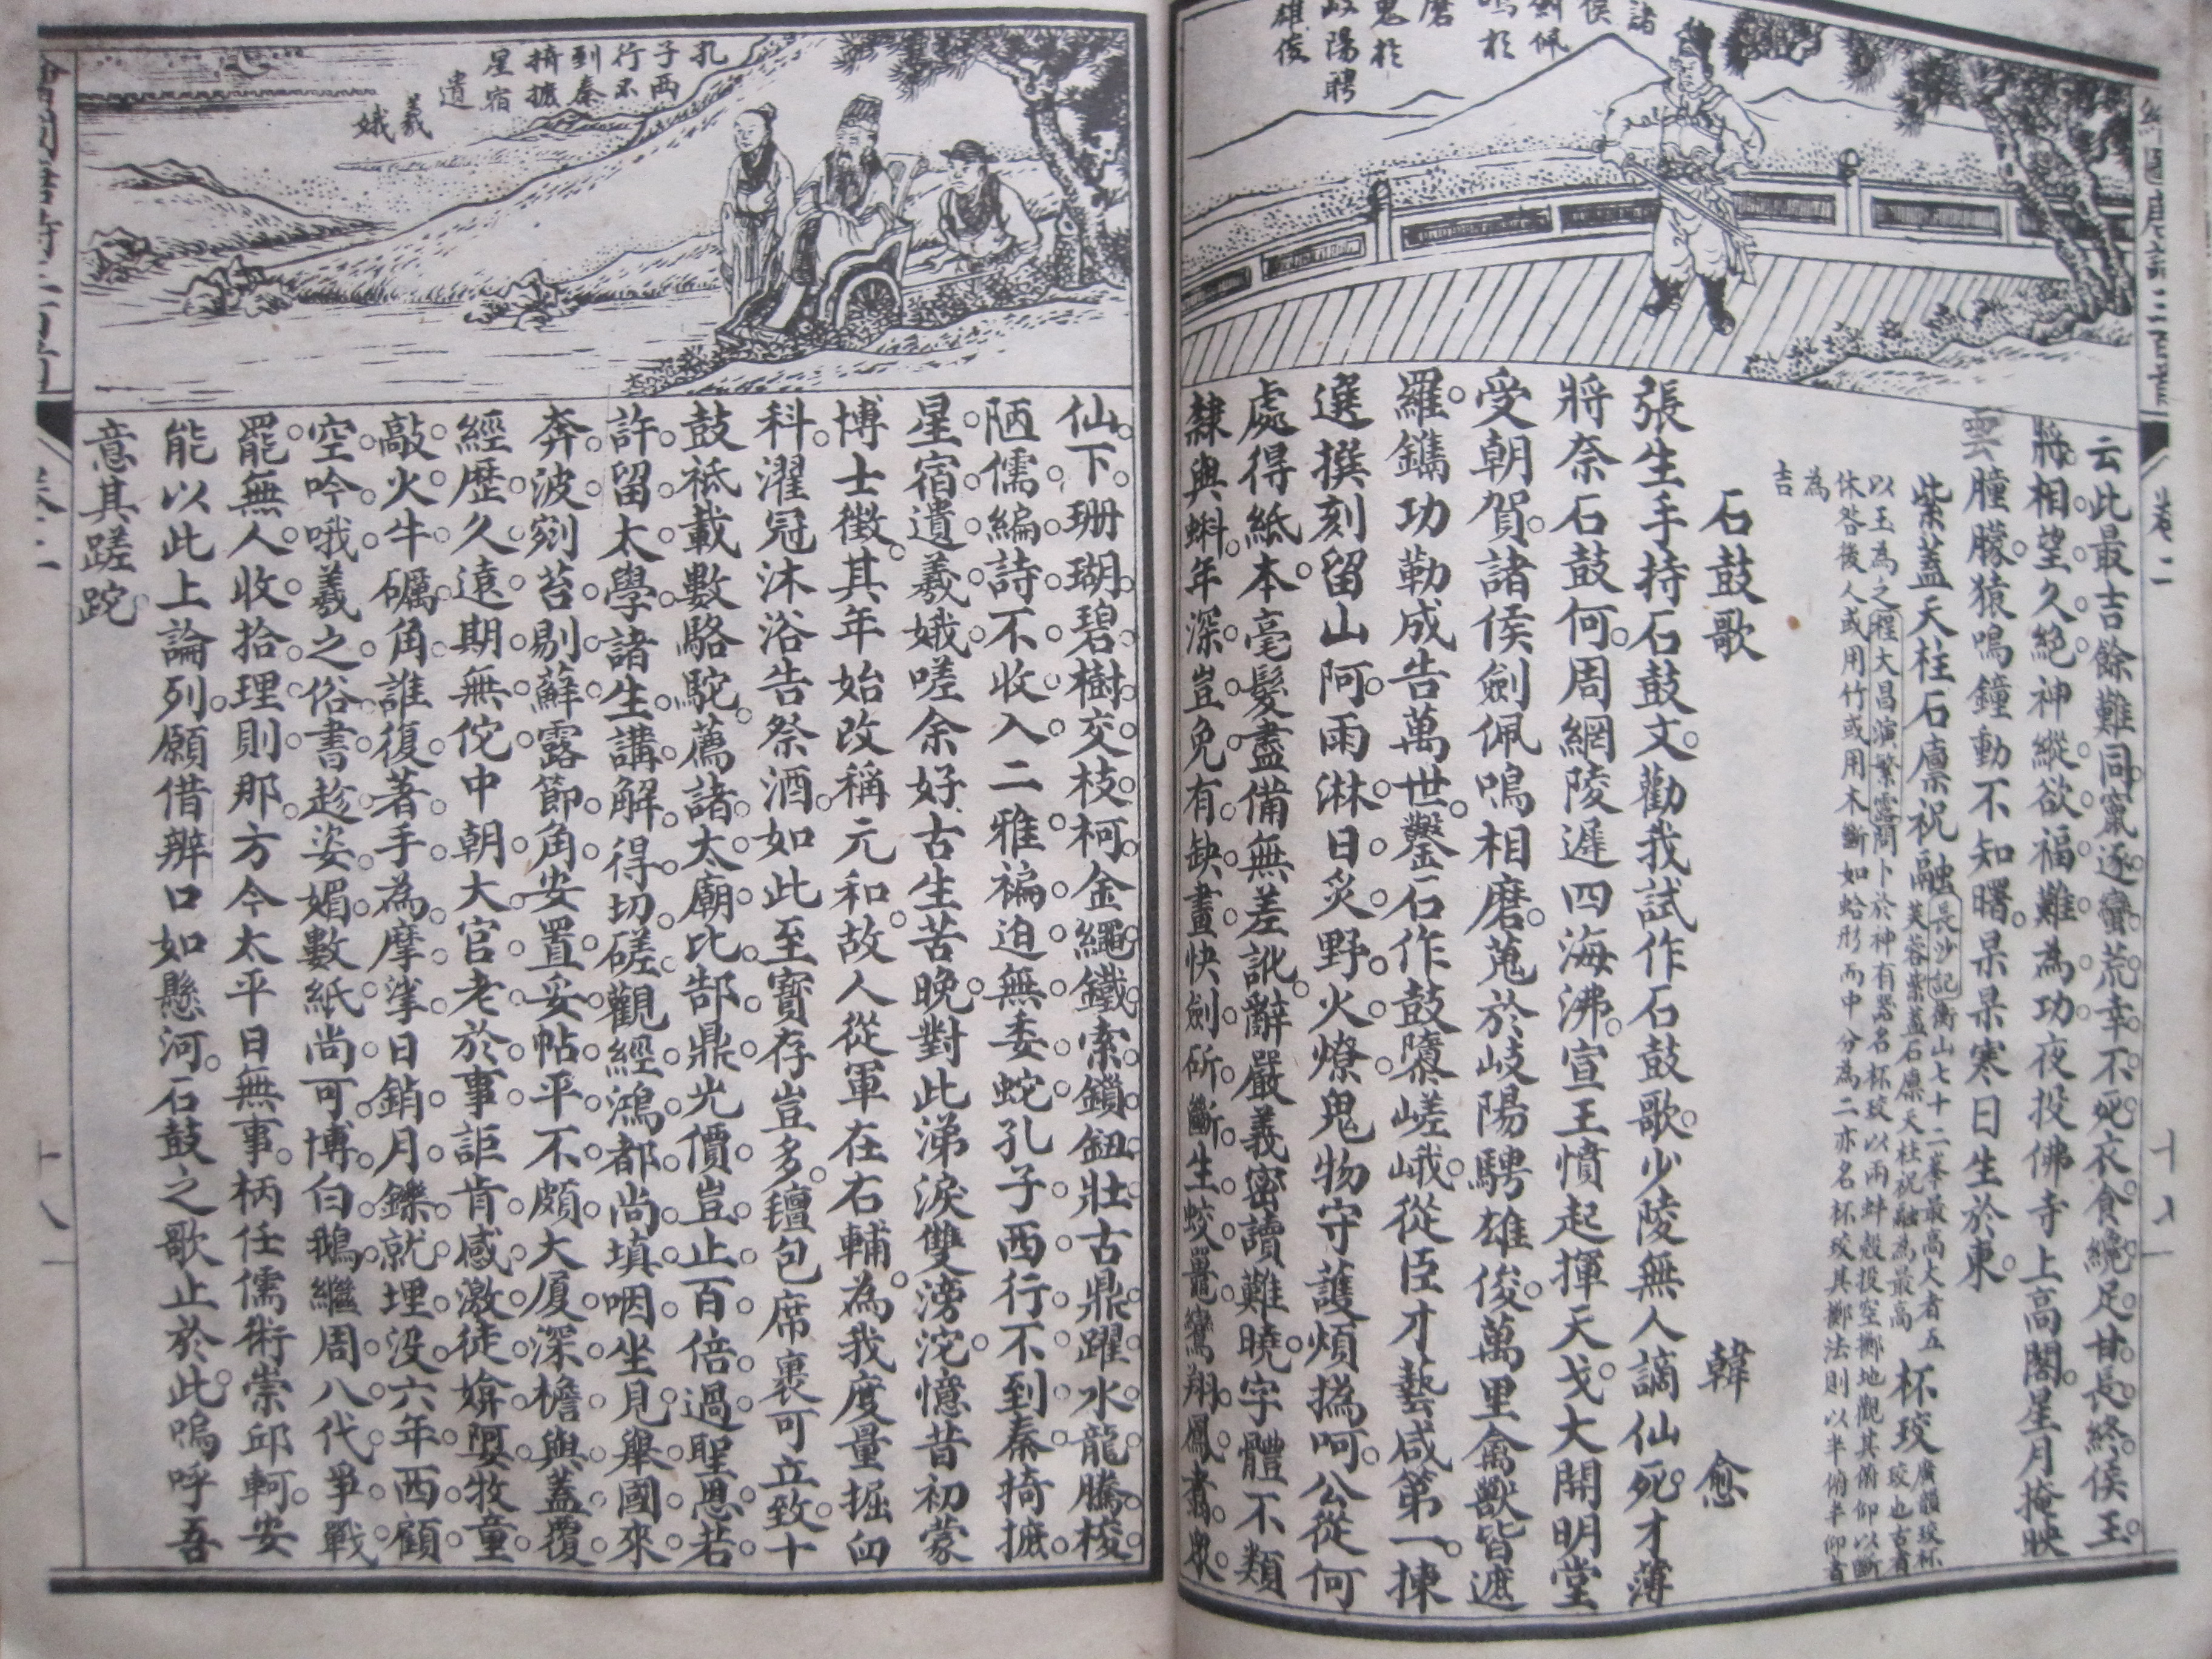 諸
侯
劍佩
鳴於
磨
鬼於
岐陽聘
雄俊
云此最吉餘難同竄逐蠻荒幸不死衣食纔足甘長終侯王
將相望久絕神縱欲福難為功夜投佛寺上高閣星月掩映
雲朣朦猿鳴鐘動不知曙杲杲寒日生於東
紫蓋天柱石廩祝融
長沙記衡山七十二峯最高大者五
芙蓉紫蓋石廩天柱祝融為最高
杯珓
廣韻珓杯
珓也古者
以玉為之程大昌演繁露問卜於神有器名杯珓以兩蚌殼投空擲地觀其俯仰以斷
休咎後人或用竹或用木斷如蛤形而中分為二亦名杯珓其擲法則以半俯半仰者
為
吉
石鼓歌 韓愈
張生手持石鼓文勸我試作石鼓歌少陵無人謫仙死才薄
將奈石鼓何周網陵遲四海沸宣王憤起揮天戈大開明堂
受朝賀諸侯劍佩鳴相磨蒐於岐陽騁雄俊萬里禽獸皆遮
羅鐫功勒成告萬世鑿石作鼓隳嵯峨從臣才藝咸第一揀
選撰刻留山阿雨淋日炙野火燎鬼物守護煩撝呵公從何
處得紙本毫髮盡備無差訛辭嚴義密讀難曉字體不類
隸與蝌年深豈免有缺畫快劍斫斷生蛟鼉鸞翔鳳翥眾
繪圖唐詩三百首
卷二
孔
子西
行不
到秦
掎摭
星宿
遺
羲
娥
仙下珊瑚碧樹交枝柯金繩鐵索鎖鈕壯古鼎躍水龍騰梭
陋儒編詩不收入二雅褊迫無委蛇孔子西行不到秦掎摭
星宿遺羲娥嗟余好古生苦晚對此涕淚雙滂沱憶昔初蒙
博士徵其年始改稱元和故人從軍在右輔為我度量掘臼
科濯冠沐浴告祭酒如此至寶存豈多氊包席裹可立致十
鼓祗載數駱駝薦諸太廟比郜鼎光價豈止百倍過聖恩若
許留太學諸生講解得切磋觀經鴻都尚填咽坐見舉國來
奔波剜苔剔蘚露節角安置妥帖平不頗大厦深檐與蓋覆
經歷久遠期無佗中朝大官老於事詎肯感激徒媕婀牧童
敲火牛礪角誰復著手為摩挲日銷月鑠就埋沒六年西顧
空吟哦羲之俗書趁姿媚數紙尚可博白鵝繼周八代爭戰
罷無人收拾理則那方今太平日無事柄任儒術崇邱軻安
能以此上論列願借辨口如懸河石鼓之歌止於此嗚呼吾
意其蹉跎
卷二
十八